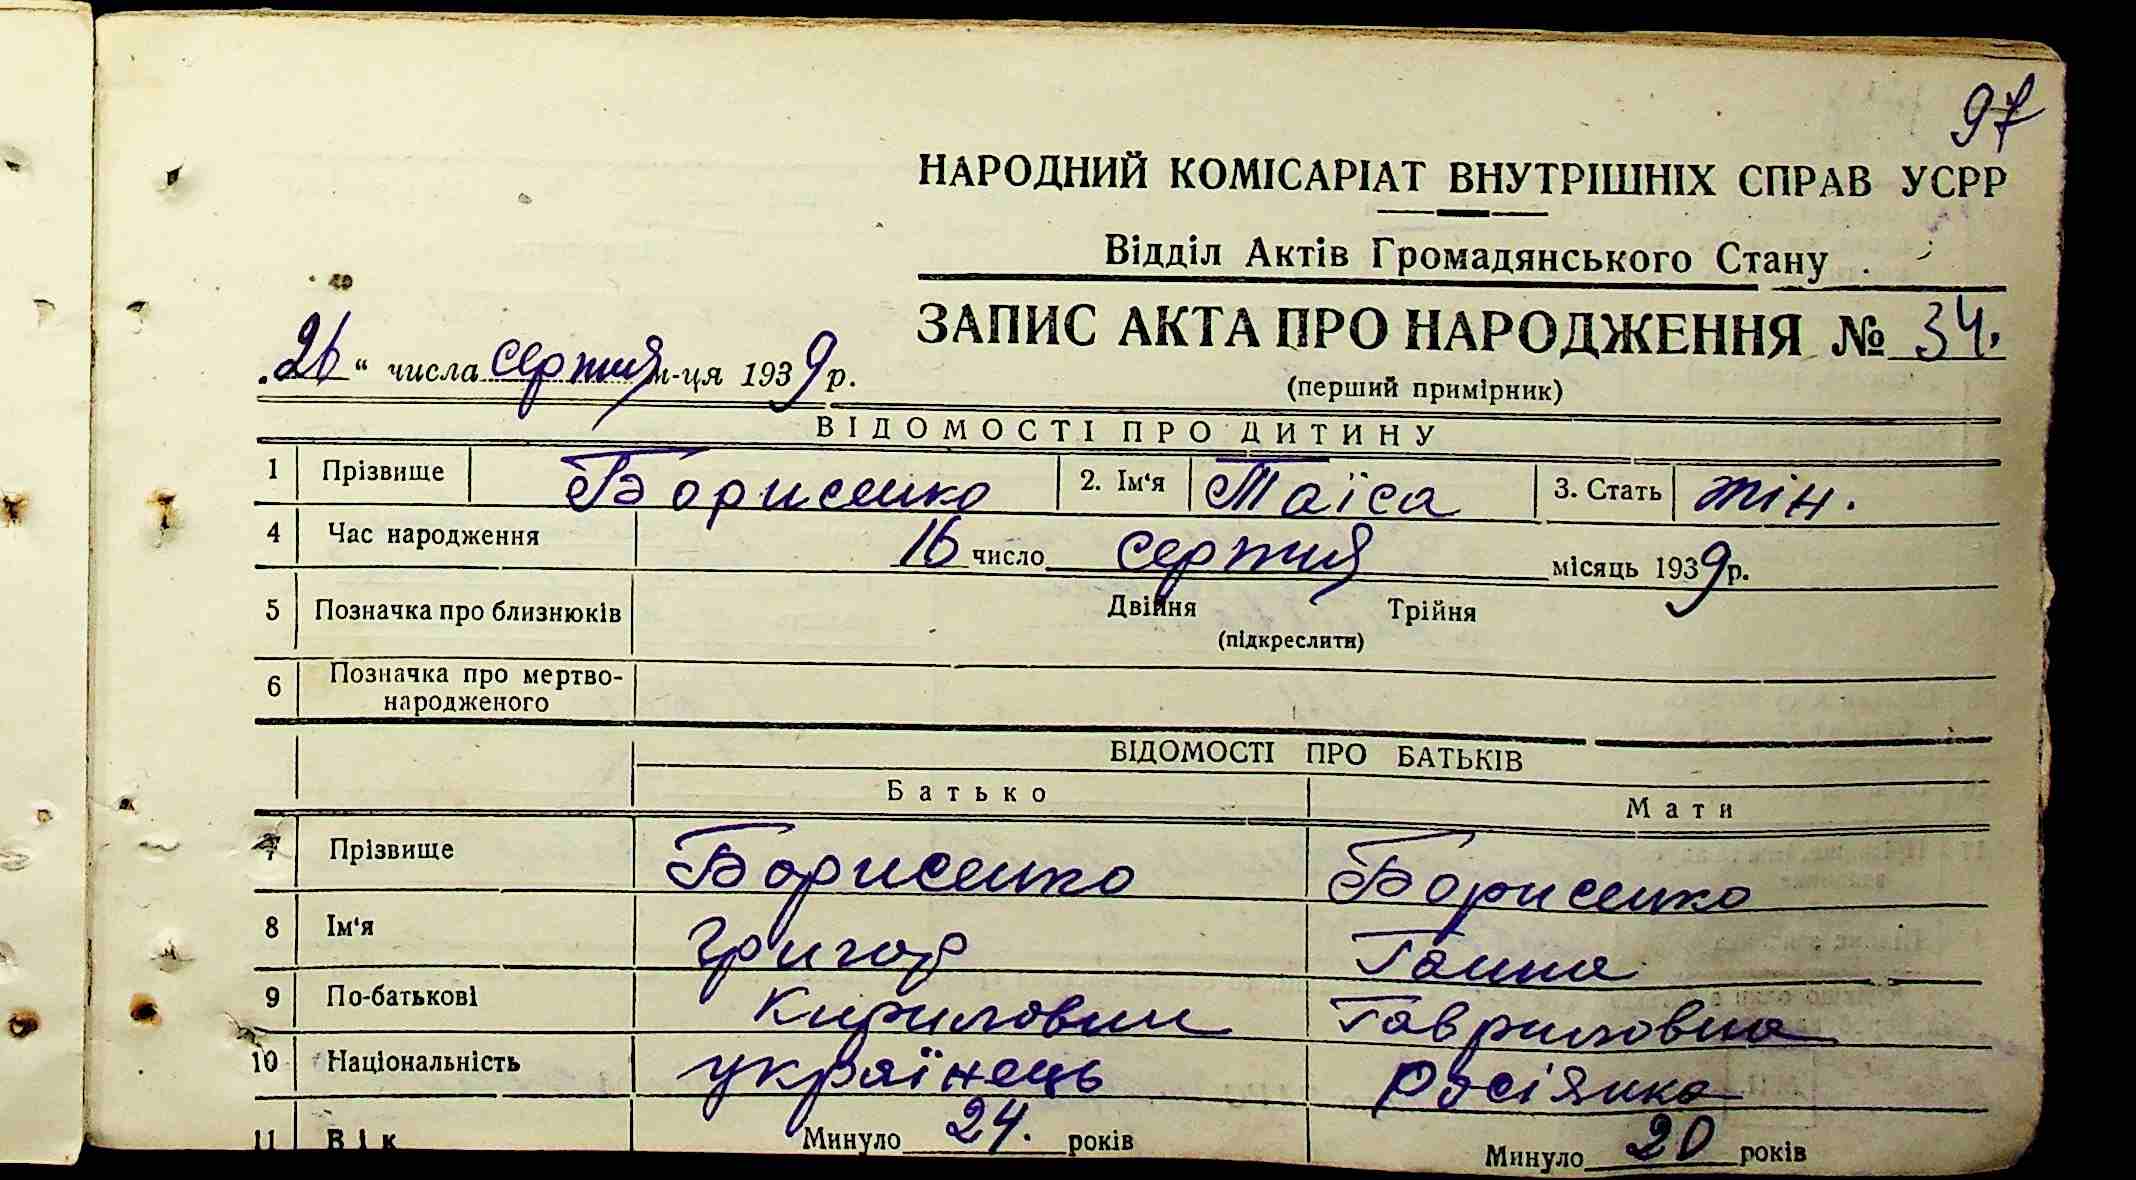 97
НАРОДНИЙ КОМІСАРІАТ ВНУТРІШНІХ СПРАВ УСРР
Відділ Актів Громадянського Стану
ЗАПИС АКТА ПРО НАРОДЖЕННЯ № 34.
„26“ числа серпня м-ця 1939 р.
(перший примірник)
ВІДОМОСТІ ПРО ДИТИНУ
1 Прізвище Борисенко 2. Ім'я Таїса 3. Стать жін.
4 Час народження 16 число серпня місяць 1939 р.
5 Позначка про близнюків Двійня Трійня
(підкреслити)
6 Позначка про мертво-
народженого
ВІДОМОСТІ ПРО БАТЬКІВ
Батько Мати
7 Прізвище Борисенко Борисенко
8 Ім'я Григор Ганна
9 По-батькові Кирилович Гавриловна
10 Національність українець Русіянка
11 Вік Минуло 24. років Минуло 20 років